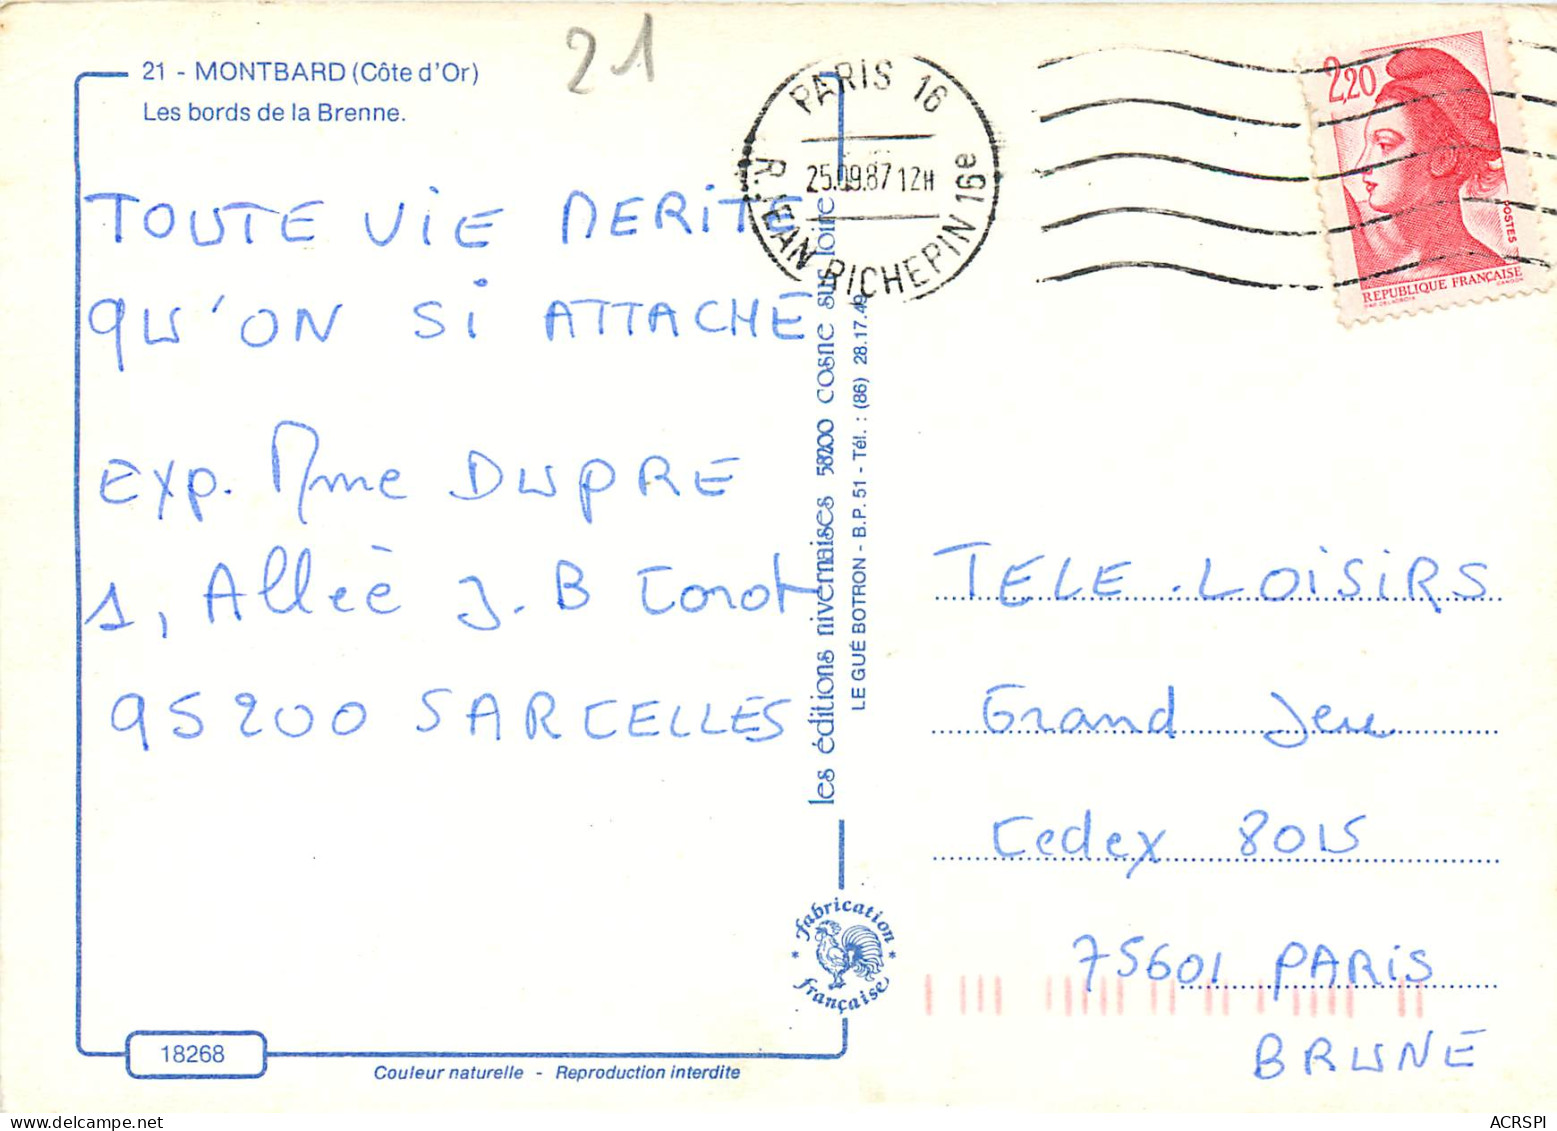 21
21 - MONTBARD (Côte d'Or)
Les bords de la Brenne.
TOUTE VIE MERITE
QU'ON S'I ATTACHE
Exp. Mme DUPRE
1, Allée J.B Corot
95200 SARCELLES
18268
Couleur naturelle - Reproduction interdite
les éditions nivernaises 58200 cosne sur loire
LE GUÉ BOTRON - B.P. 51 - Tél. : (86) 28.17.49
fabrication
française
PARIS 16
25.09.87 12H
R. JEAN RICHEPIN 16e
2,20
POSTES
REPUBLIQUE FRANÇAISE
TELE.LOISIRS
Grand Jeu
Cedex 8015
75601 PARIS
BRUNE
ACRSPI